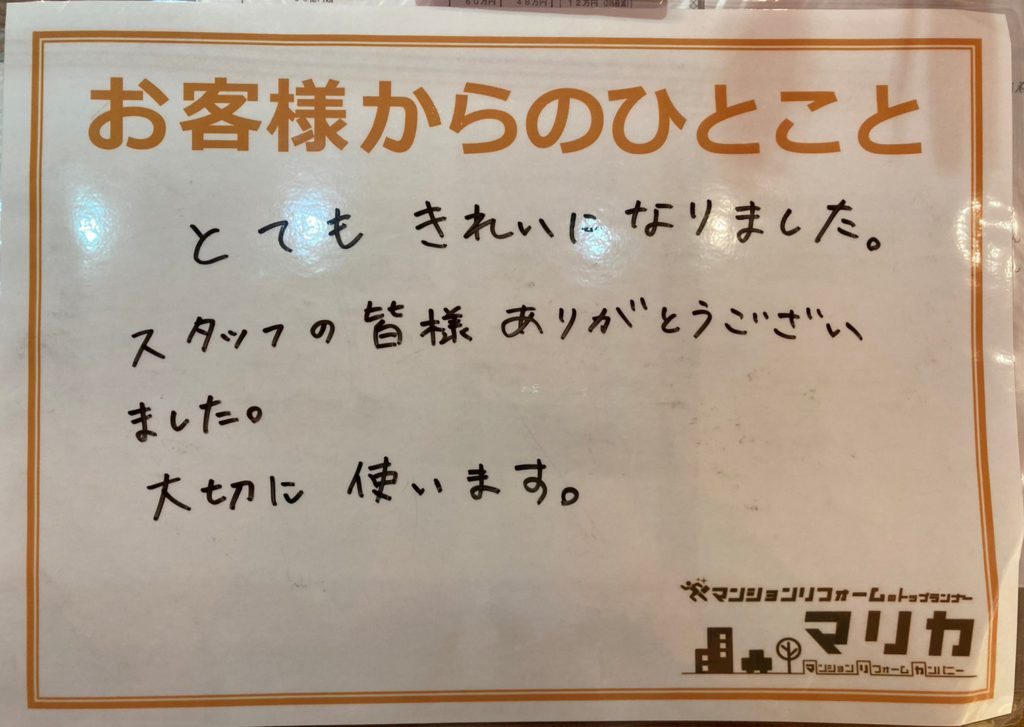 60万円 48万円 12万円
お客様からのひとこと
とても きれいに なりました。
スタッフの 皆様 ありがとうござい
ました。
大切に 使います。
マンションリフォームのトップランナー
マリカ
マンションリフォームカンパニー